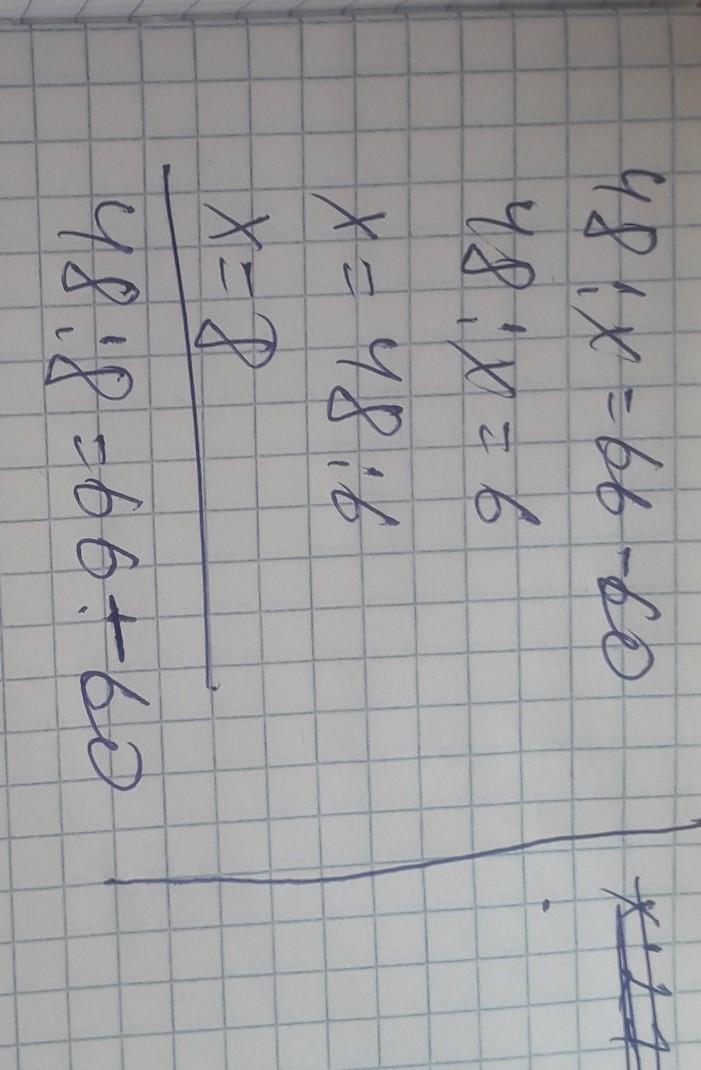 48 : x = 66 - 60
48 : x = 6
x = 48 : 6
x = 8
48 : 8 = 66 - 60